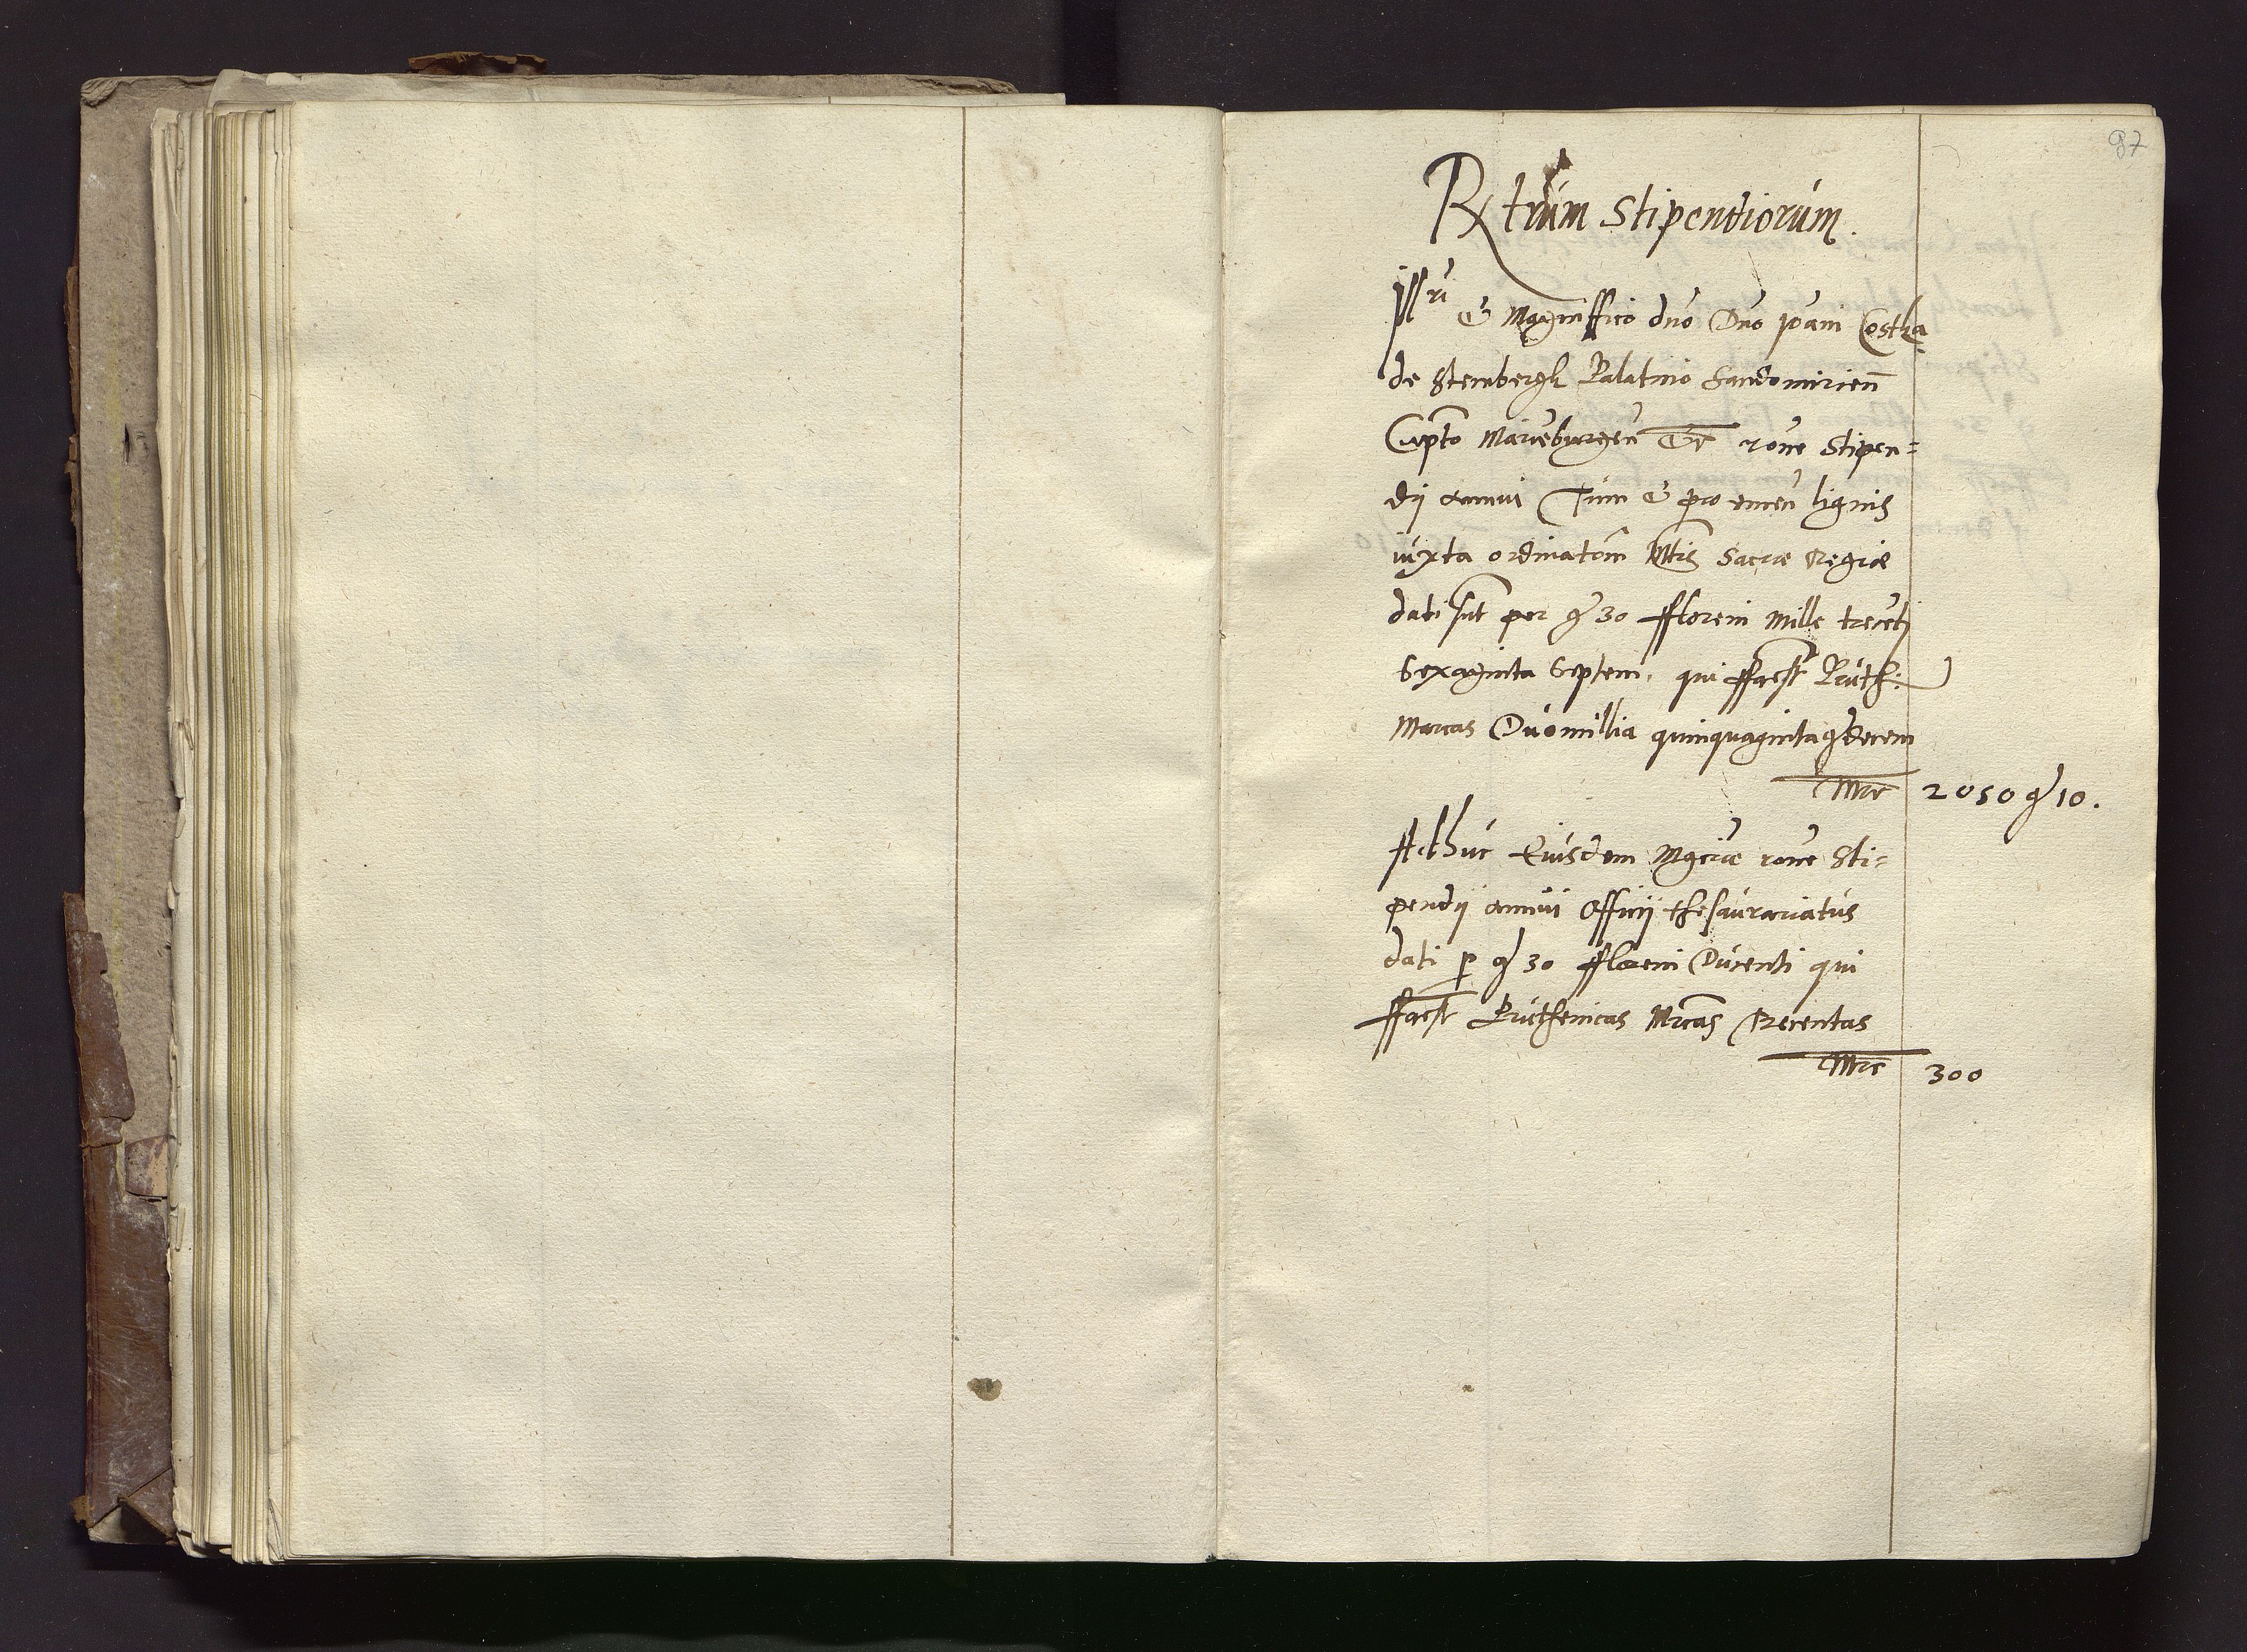 87
Rtrum Stipendiorum.
Illri & Magniffico dno Dno Joani Costka
de Stembergk Palatino Sandomirien
Capto Marieburgen Etc rone Stipen=
dij annui Tum & pro emen lignis
iuxta ordinatom Mtis Sacrae Regiae
dati sut per g 30 ffloreni Mille treceti
Sexaginta Septem, qui ffacst Pruth:
Marcas Duomillia quinquaginta g decem
Mrc 2050 g 10.
Adhuc Eiusdem Mgciae rone Sti=
pendij annui Officij thesaurariatus
dati p g 30 ffloreni Ducenti qui
ffacst Pruthenicas Mrcas Trecentas
Mrc 300